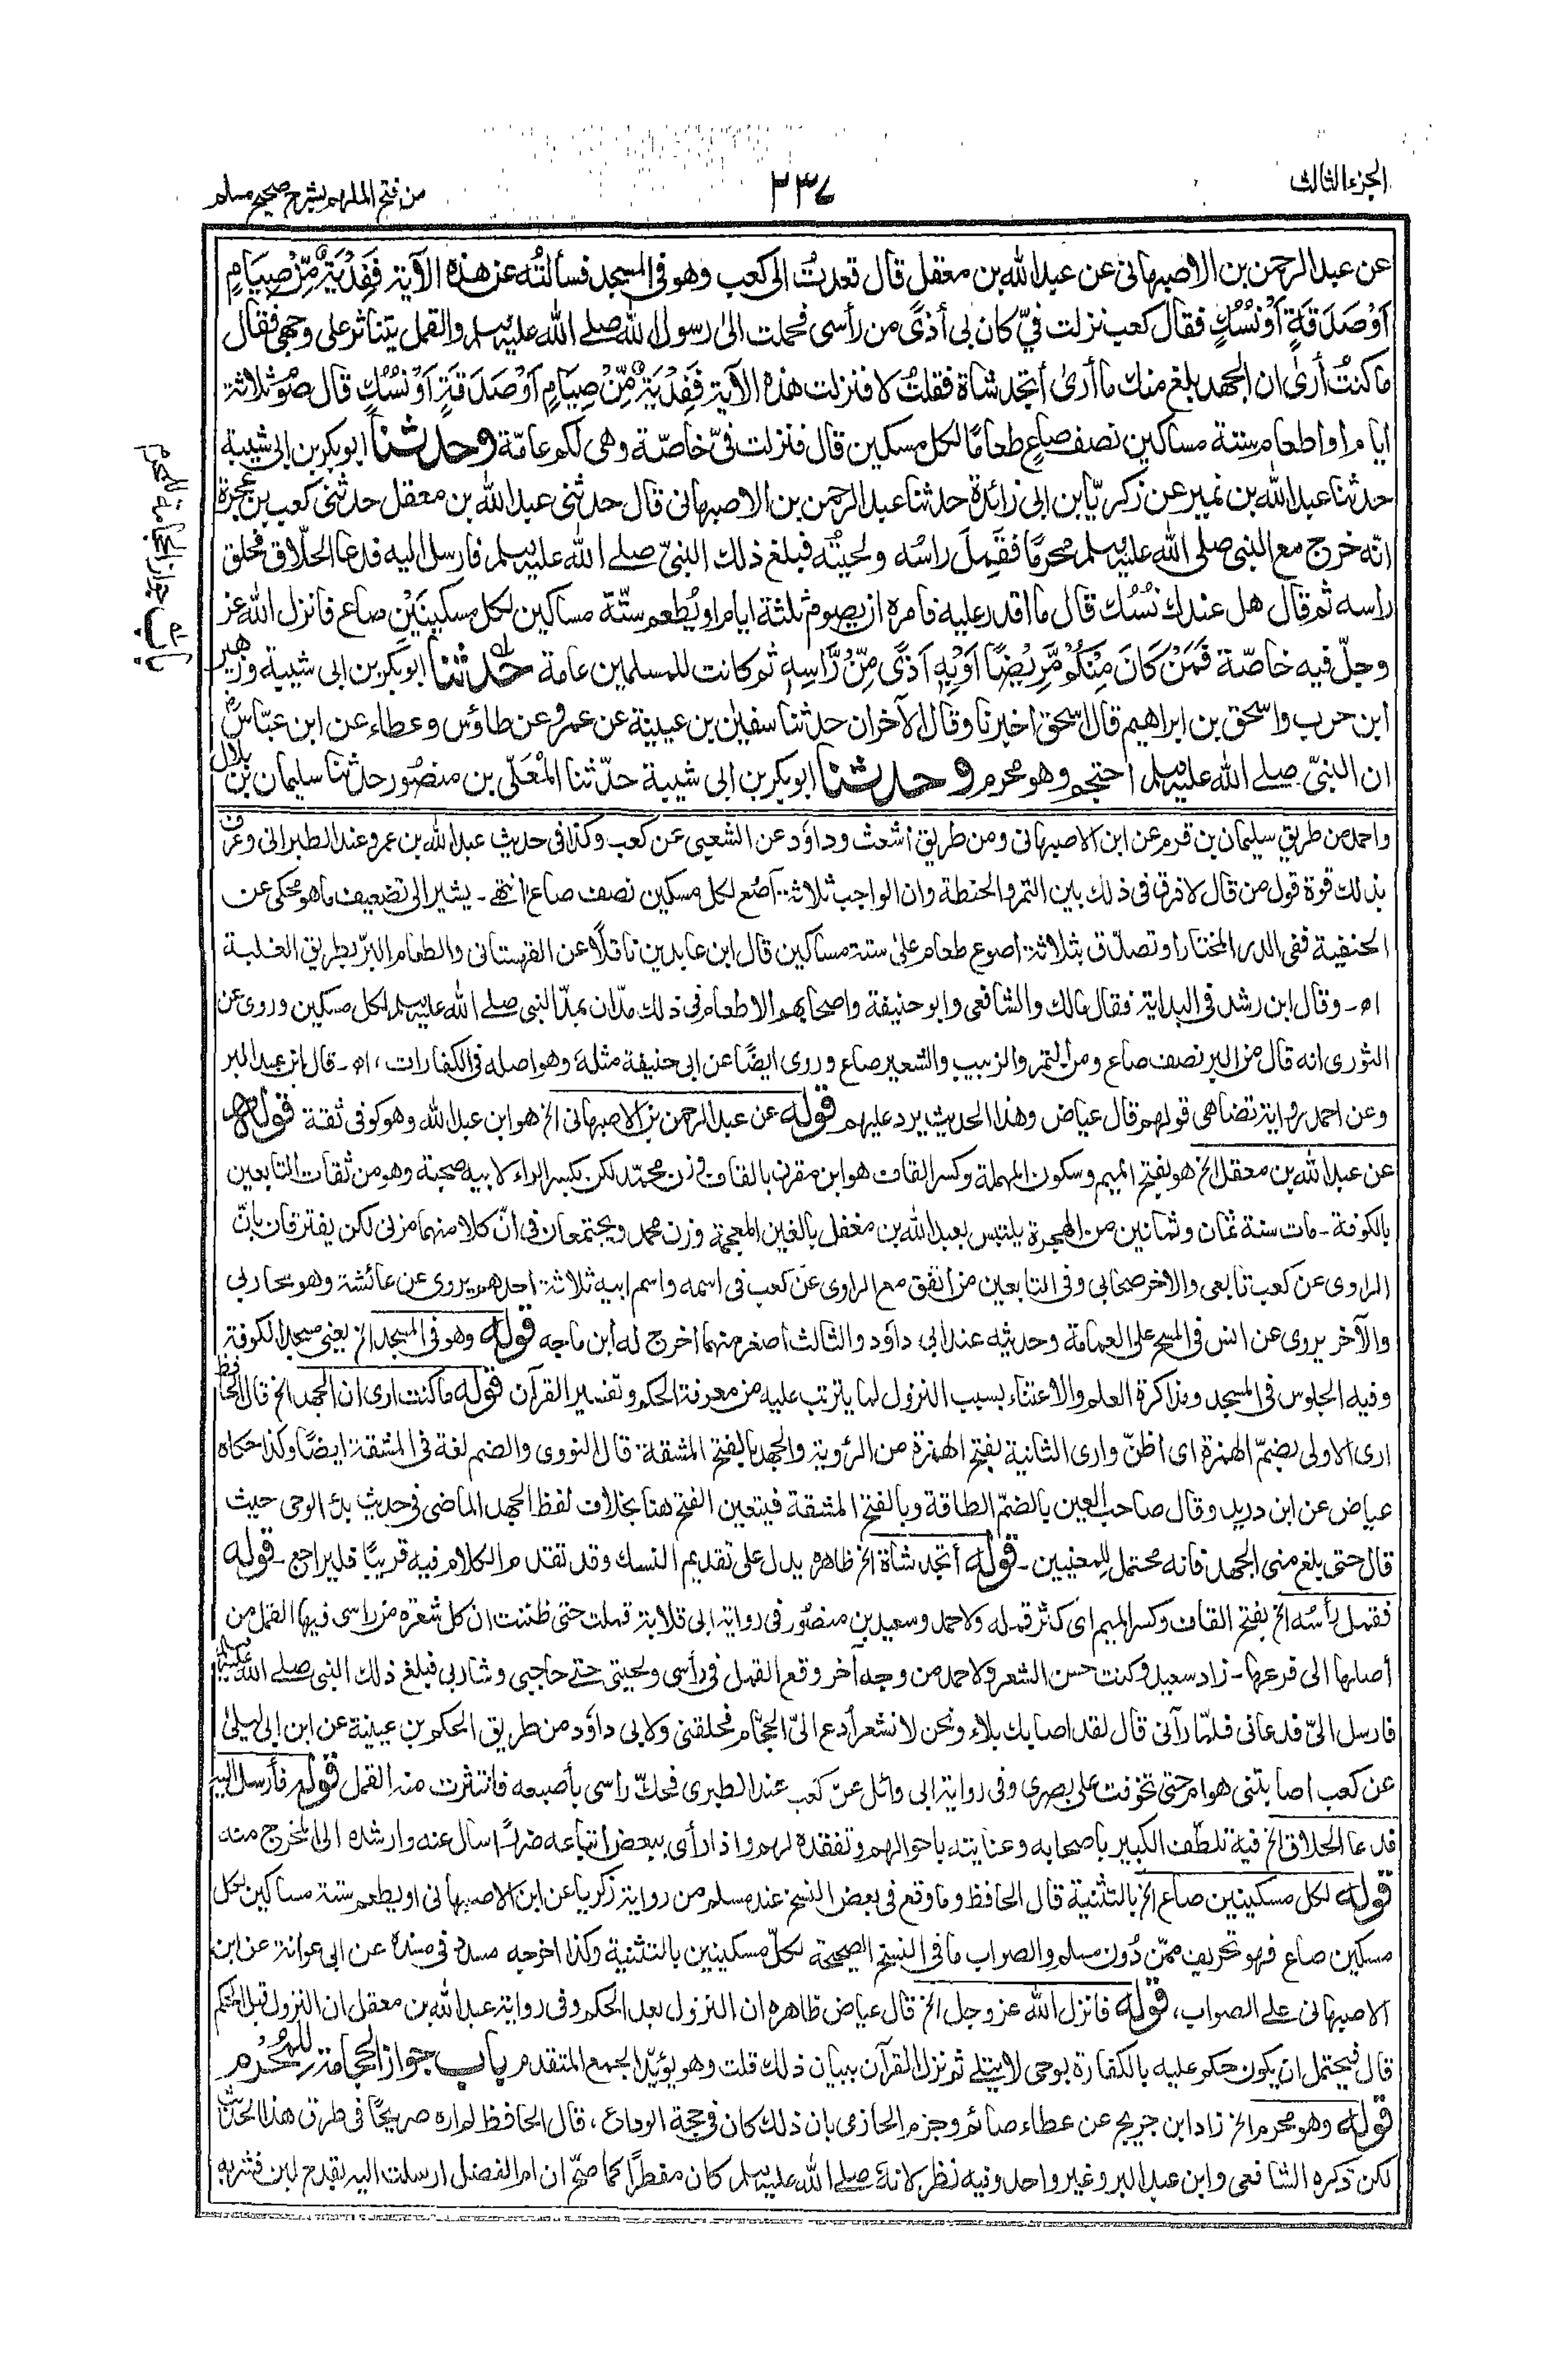 الجزء الثالث
٢٣٤
من فتح الملهم بشرح صحيح مسلم
عن عبد الرحمن بن الاصبهانى عن عبد الله بن معقل قال قعدتُ الى كعب وهو فى المسجد فسألتُه عن هذه الآية فَفِدْيَةٌ مِّنْ صِيَامٍ
اَوْ صَدَقَةٍ اَوْ نُسُكٍ فقال كعب نزلت فيّ كان بى أذىً من رأسى فحملت الىٰ رسول الله صلى الله عليه وسلم والقمل يتناثر على وجهى فقال
ما كنتُ أرىٰ ان الجهد بلغ منك ما أرىٰ أتجد شاة فقلتُ لا فنزلت هذه الآية فَفِدْيَةٌ مِّنْ صِيَامٍ اَوْ صَدَقَةٍ اَوْ نُسُكٍ قال صوم ثلاثة
ايام او اطعام ستة مساكين نصف صاع طعامًا لكل مسكين قال فنزلت فىّ خاصّة وهى لكم عامّة وحدثنا ابو بكر بن ابى شيبة
حدثنا عبد الله بن نمير عن زكريّا بن ابى زائدة حدثنا عبد الرحمن بن الاصبهانى قال حدثنى عبد الله بن معقل حدثنى كعب بن عجرة
انّه خرج مع النبى صلى الله عليه وسلم محرمًا فقَمِلَ راسُه ولحيتُه فبلغ ذلك النبىّ صلے الله عليه وسلم فارسل اليه فدعا الحلّاق فحلق
راسه ثم قال هل عندك نُسُك قال ما اقدر عليه فامره ان يصوم ثلثة ايام او يُطعم ستّة مساكين لكل مسكينَيْن صاع فانزل الله عز
وجلّ فيه خاصّة فَمَنْ كَانَ مِنْكُمْ مَّرِيْضًا اَوْ بِهٖ اَذًى مِّنْ رَّاْسِهٖ ثم كانت للمسلمين عامة حدثنا ابو بكر بن ابى شيبة وزهير
ابن حرب واسحق بن ابراهيم قال اسحق اخبرنا وقال الآخران حدثنا سفين بن عيينة عن عمرو عن طاؤس وعطاء عن ابن عبّاس
ان النبىّ صلے الله عليه وسلم احتجم وهو محرم وحدثنا ابو بكر بن ابى شيبة حدّثنا المُعَلّى بن منصُور حدثنا سليمان بن بلال
باب جواز الحجامة للمحرم
واحمد من طريق سليمان بن قرم عن ابن الاصبهانى ومن طريق اشعث وداوٗد عن الشعبى عن كعب وكذا فى حديث عبد الله بن عمرو عند الطبرانى وعرف
بذلك قوة قول من قال لا فرق فى ذلك بين التمر والحنطة وان الواجب ثلاثة آصُع لكل مسكين نصف صاع انتهى ـ يشير الى تضعيف ما هو محكى عن
الحنفية ففى الدر المختار او تصدّق بثلاثة اصوع طعام علىٰ ستة مساكين قال ابن عابدين ناقلًا عن القهستانى والطعام البرّ بطريق الغلبة
اه ـ وقال ابن رشد فى البداية فقال مالك والشافعى وابو حنيفة واصحابهم الاطعام فى ذلك مدّان بمدّ النبى صلے الله عليه وسلم لكل مسكين وروى عن
الثورى انه قال من البر نصف صاع ومن التمر والزبيب والشعير صاع وروى ايضًا عن ابى حنيفة مثله وهو اصله فى الكفارات، اه ـ قال ابن عبد البر
وعن احمد رواية تضاهى قولهم قال عياض وهذا الحديث يرد عليهم قوله عن عبد الرحمن بن الاصبهانى الخ هو ابن عبد الله وهو كوفى ثقة قوله
عن عبد الله بن معقل الخ هو بفتح الميم وسكون المهملة وكسر القاف هو ابن مقرن بالقاف وزن محمّد لكن بكسر الراء لابيه صحبة وهو من ثقات التابعين
بالكوفة ـ مات سنة ثمان وثمانين من الهجرة يلتبس بعبد الله بن مغفل بالغين المعجمة وزن محمد ويجتمعان فى انّ كلا منهما مزنى لكن يفترقان بانّ
الراوى عن كعب تابعى والاخر صحابى وفى التابعين من اتفق مع الراوى عن كعب فى اسمه واسم ابيه ثلاثة احدهم يروى عن عائشة وهو محاربى
والآخر يروى عن انس فى المسح على العمامة وحديثه عند ابى داوٗد والثالث اصغر منهما اخرج له ابن ماجه قوله وهو فى المسجد الخ يعنى مسجد الكوفة
وفيه الجلوس فى المسجد ومذاكرة العلم والاعتناء بسبب النزول لما يترتب عليه من معرفة الحكم وتفسير القرآن قوله ما كنت ارى ان الجهد الخ قال الحافظ
ارى الاولى بضمّ الهمزة اى اظنّ وارى الثانية بفتح الهمزة من الرؤية والجهد بالفتح المشقة قال النووى والضم لغة فى المشقة ايضًا وكذا حكاه
عياض عن ابن دريد وقال صاحب العين بالضمّ الطاقة وبالفتح المشقة فيتعين الفتح هنا بخلاف لفظ الجهد الماضى فى حديث بدء الوحى حيث
قال حتى بلغ منى الجهد فانه محتمل للمعنيين ـ قوله أتجد شاة الخ ظاهره يدل على تقديم النسك وقد تقدم الكلام فيه قريبًا فليراجع ـ قوله
فقمل رأسُه الخ بفتح القاف وكسر الميم اى كثر قمله ولاحمد وسعيد بن منصُور فى رواية ابى قلابة قملت حتى ظننت ان كل شعرة من راسى فيها القمل من
أصلها الى فرعها ـ زاد سعيد وكنت حسن الشعر ولاحمد من وجه آخر وقع القمل فى رأسى ولحيتى حتے حاجبى وشاربى فبلغ ذلك النبى صلے الله عليه وسلم
فارسل الىّ فدعانى فلمّا رآنى قال لقد اصابك بلاء ونحن لا نشعر أدع الىّ الحجّام فحلقنى ولابى داوٗد من طريق الحكم بن عيينة عن ابن ابى ليلىٰ
عن كعب اصابتنى هوام حتى تخوفت على بصرى وفى رواية ابى وائل عن كعب عند الطبرى فحكّ راسى بأصبعه فانتثرت منه القمل قوله فأرسل اليه
فدعا الحلاق الخ فيه تلطّف الكبير باصحابه وعنايته باحوالهم وتفقده لهم واذا رأى ببعض اتباعه ضررًا سأل عنه وارشده الى المخرج منه
قوله لكل مسكينين صاع الخ بالتثنية قال الحافظ وما وقع فى بعض النسخ عند مسلم من رواية زكريا عن ابن الاصبهانى او يطعم ستة مساكين لكل
مسكين صاع فهو تحريف ممّن دُون مسلم والصواب ما فى النسخ الصحيحة لكلّ مسكينين بالتثنية وكذا اخرجه مسدد فى مسنده عن ابى عوانة عن ابن
الاصبهانى علے الصواب، قوله فانزل الله عز وجل الخ قال عياض ظاهره ان النزول بعد الحكم وفى رواية عبد الله بن معقل ان النزول قبل الحكم
قال فيحتمل ان يكون حكم عليه بالكفارة بوحى لا يتلے ثم نزل القرآن ببيان ذلك قلت وهو يؤيّد الجمع المتقدم باب جواز الحجامة للمُحْرِم
قوله وهو محرم الخ زاد ابن جريج عن عطاء صائم وجزم الحازمى بان ذلك كان فى حجة الوداع، قال الحافظ لم اره صريحًا فى طرق هذا الحديث
لكن ذكره الشافعى وابن عبد البر وغير واحد وفيه نظر لانهٗ صلے الله عليه وسلم كان مفطرًا كما صحّ ان ام الفضل ارسلت اليه بقدح لبن فشربه